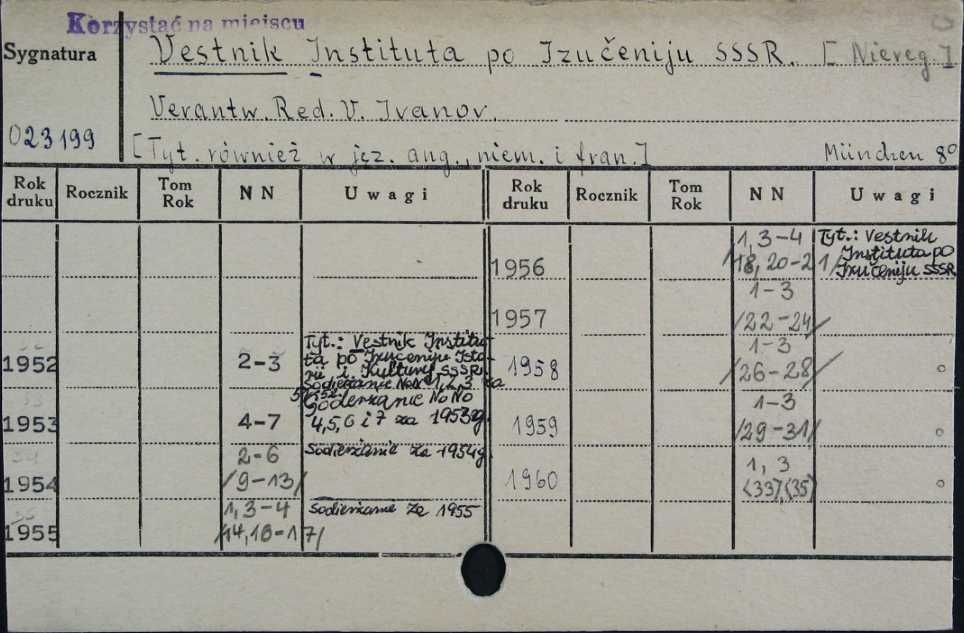 Korzystać na miejscu
Sygnatura
Vestnik Instituta po Izučeniju SSSR. [Niereg.]
Verantw. Red. V. Ivanov.
023199
[Tyt. również w jęz. ang., niem. i fran.] München 8°
Rok druku Rocznik Tom Rok NN Uwagi Rok druku Rocznik Tom Rok NN Uwagi
1956 1, 3-4 /18, 20-21/ Tyt.: Vestnik Instituta po Izučeniju SSSR
1957 1-3 /22-24/
1952 2-3 Tyt.: Vestnik Instituta po Izučeniju Istorii i Kultury SSSR.
Sodierżanie NoNo 1,2,3 za
1958 1-3 /26-28/
1953 4-7 Soderżanie NoNo 4,5,6 i 7 za 1953g.
1959 1-3 /29-31/
1954 2-6 /9-13/ Sodierżanie za 1954g.
1960 1, 3 (33), (35)
1955 1, 3-4 /14, 16-17/ Sodierżanie za 1955